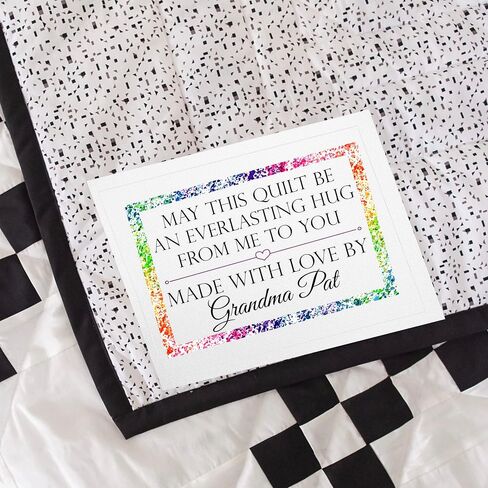 MAY THIS QUILT BE
AN EVERLASTING HUG
FROM ME TO YOU
MADE WITH LOVE BY
Grandma Pat